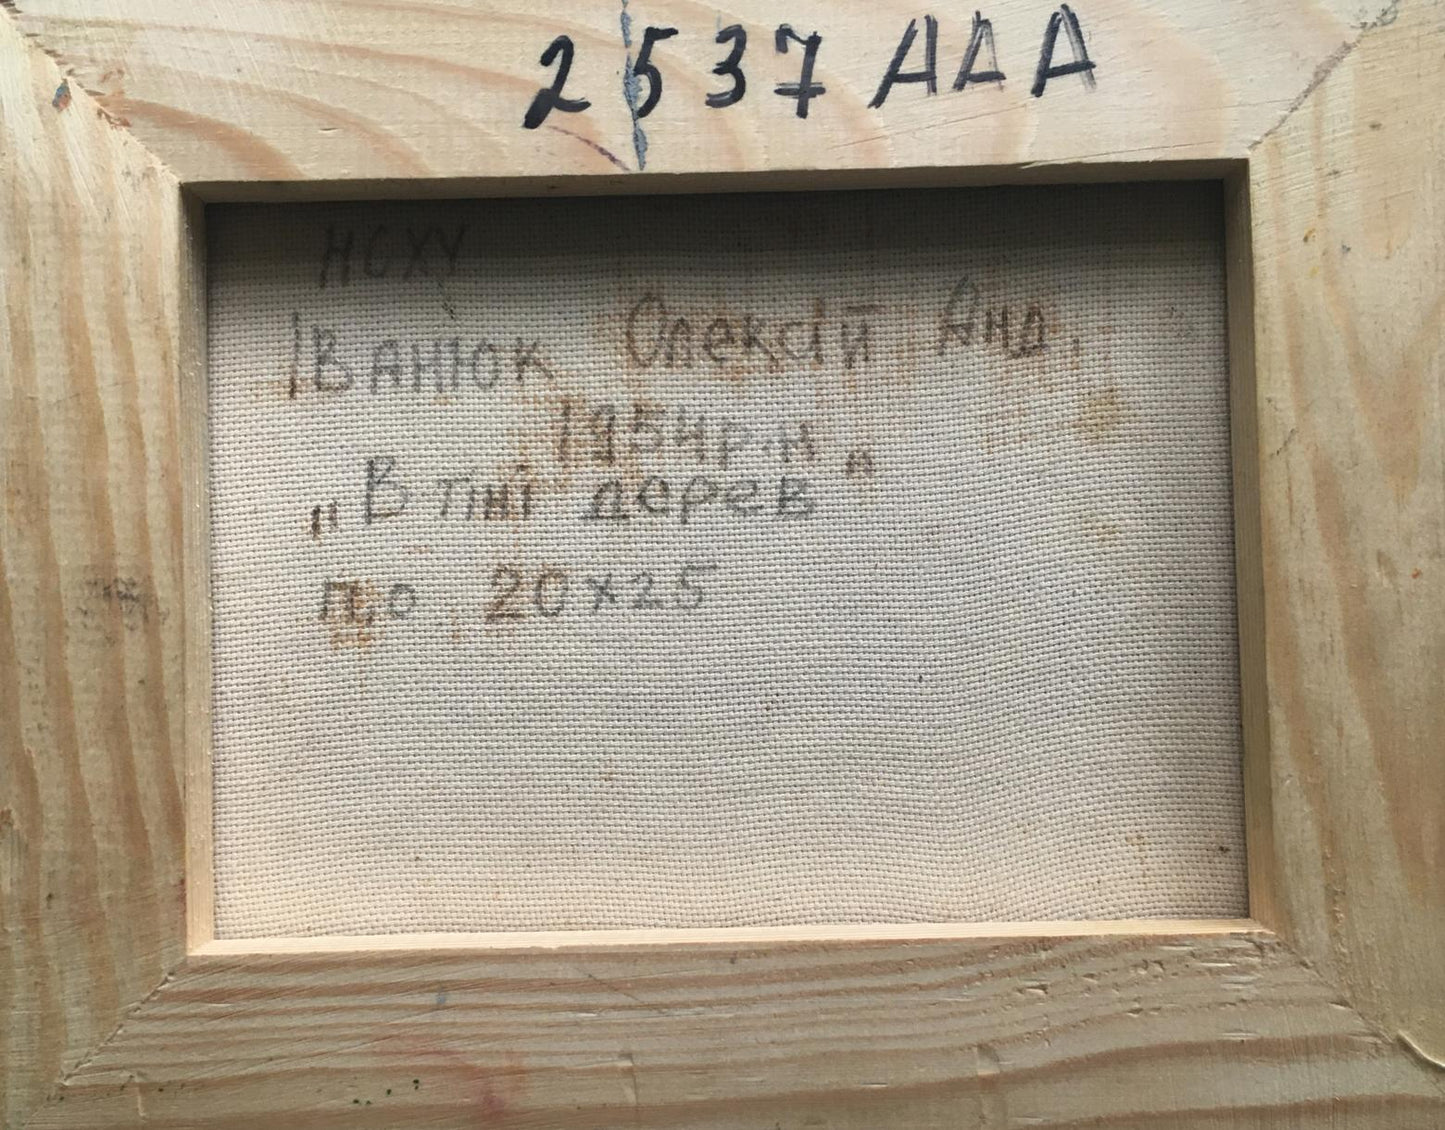 2537 AAA
НСХУ
Іванюк Олексій Анд.
1954р.н
„В тіні дерев"
п.о. 20х25